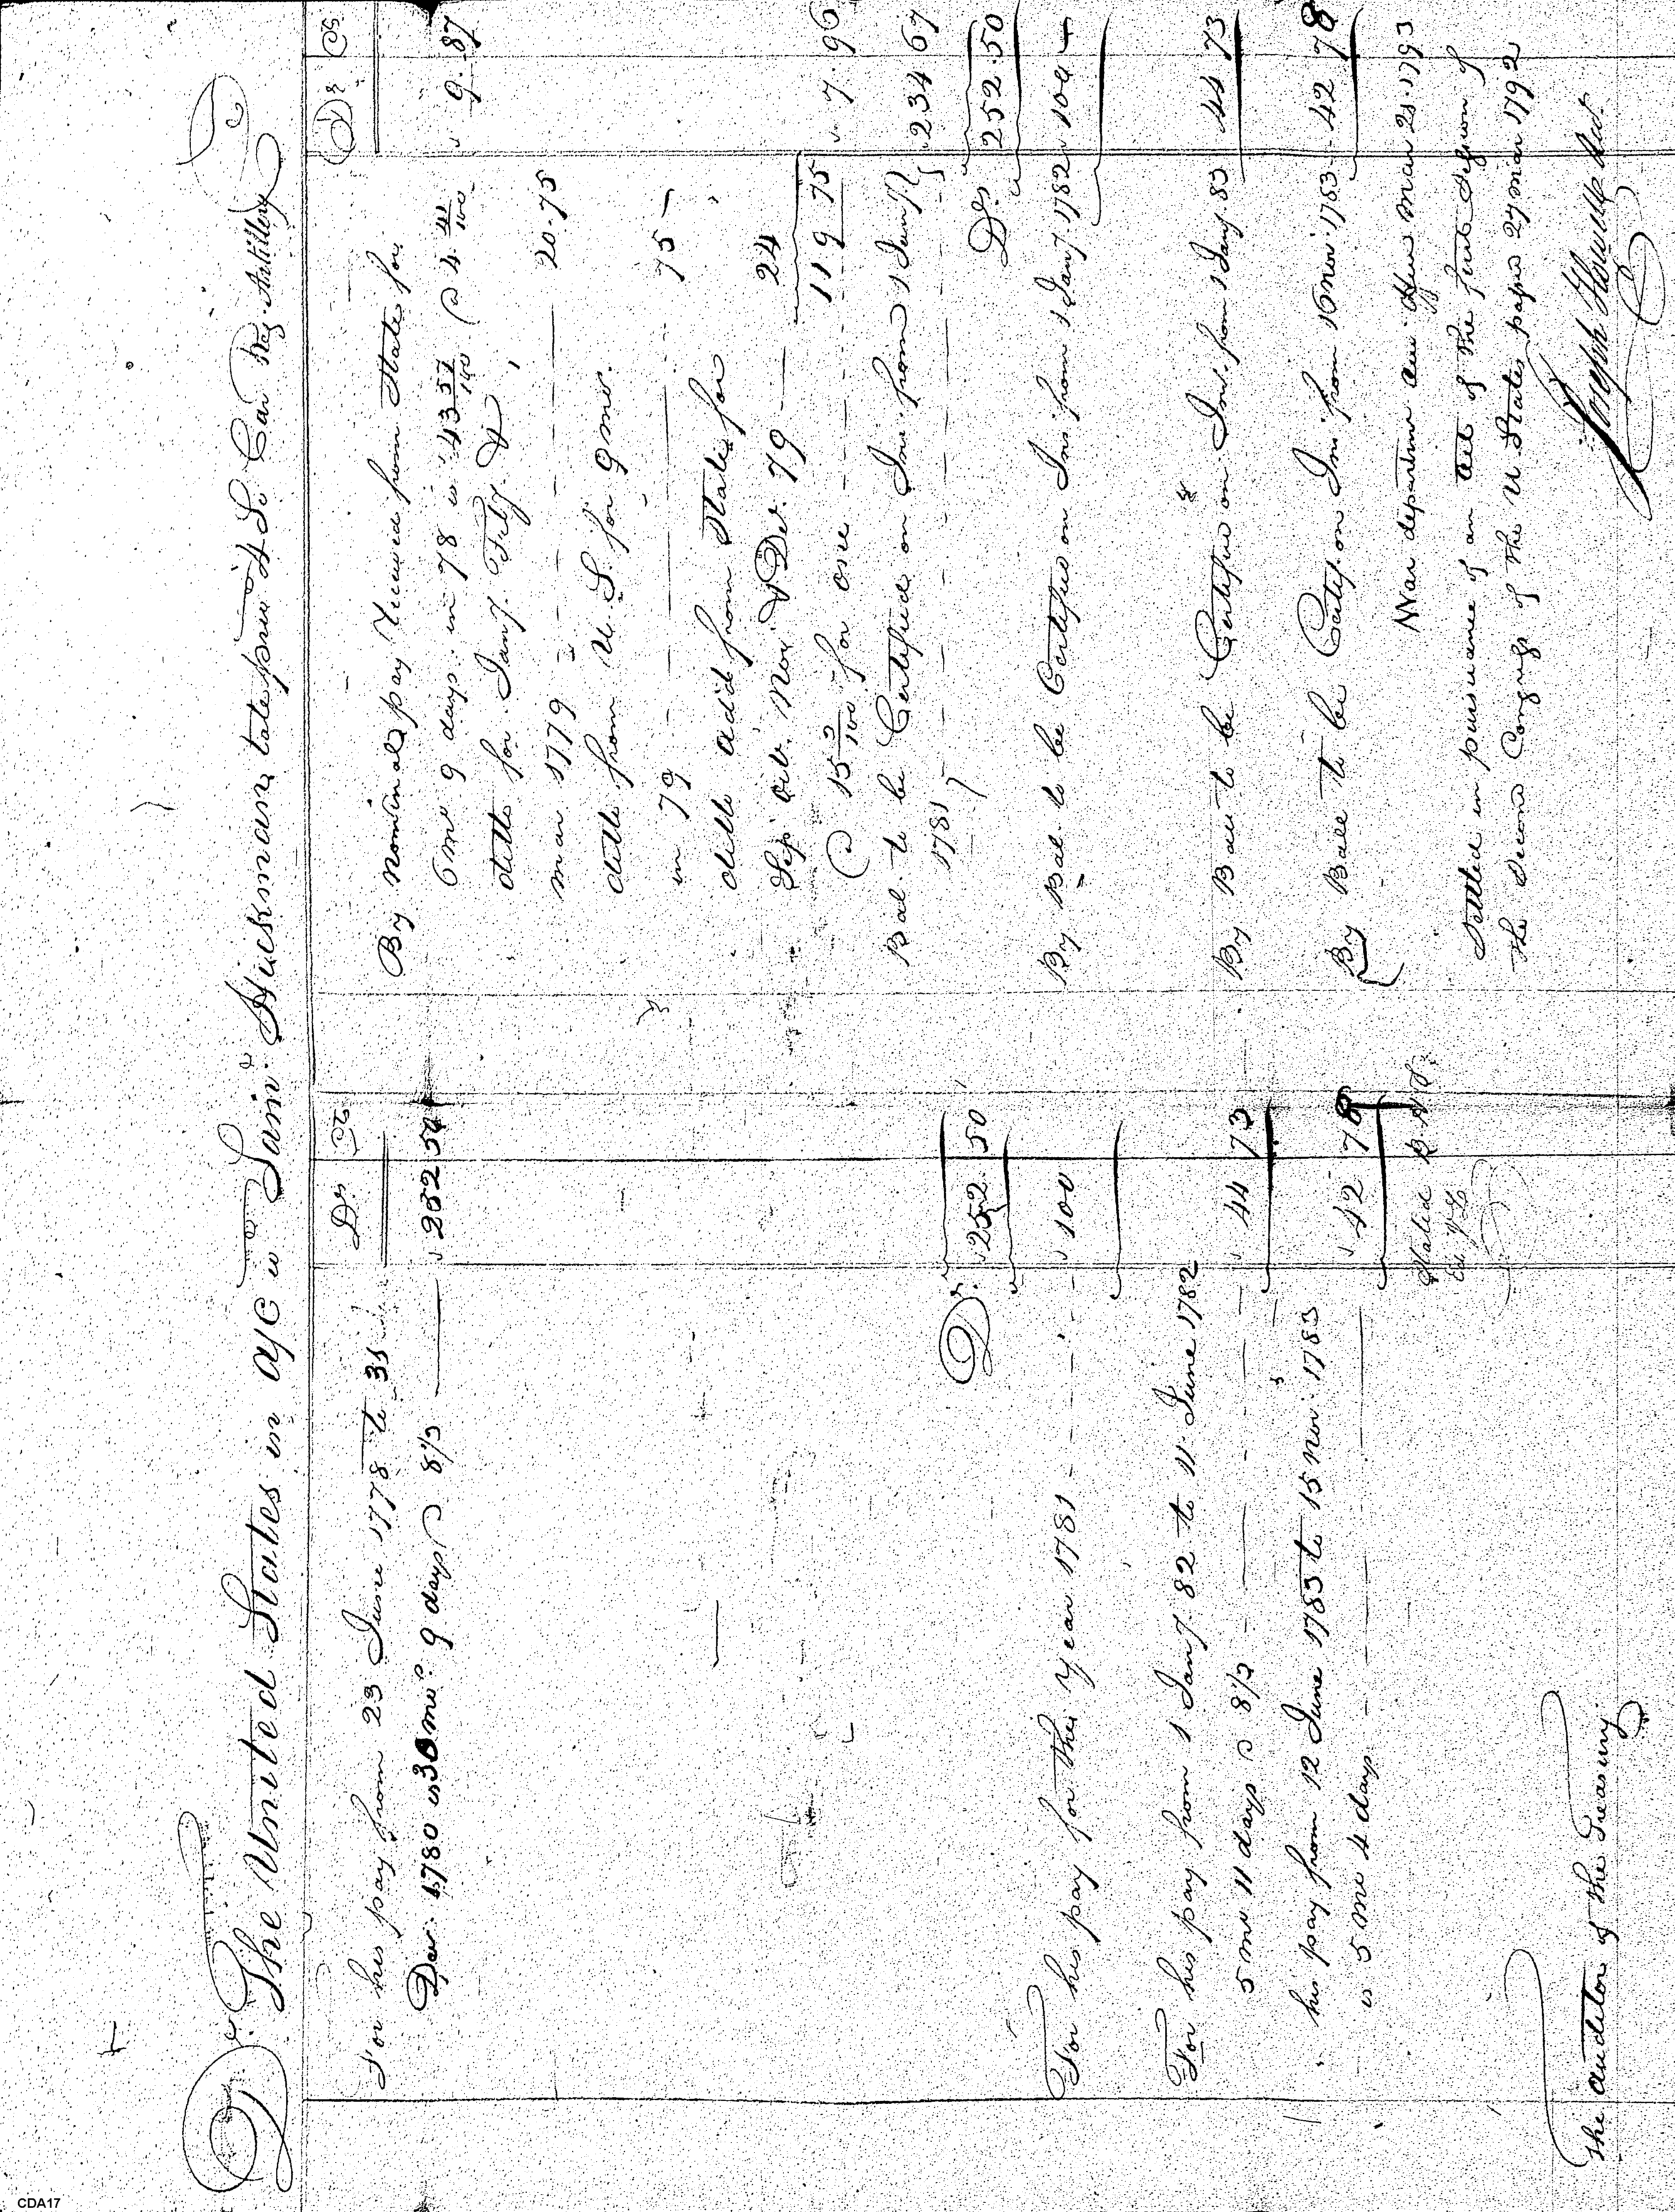 Dr. The United States in a/c wt. Saml. Hickman late priv 4 So Car Reg. Artillery Cr
Ds Cts
For his pay from 23 June 1778 to 31
Decr. 1780 is 30 mo. 9 days @ 8 1/3 252 50
Ds. 252.50
For his pay for the year 1781 100
For his pay from 1 Jany. 82 to 11 June 1782
5 mo 11 days @ 8 1/3 44 73
his pay from 12 June 1783 to 15 Nov. 1783
is 5 mo 4 days 42 78
Stated
The auditor of the Treasury
Ds Cs
By nominal pay received from State for
6 mo 9 days in 78 is 43 57/100 @ 4 41/100 9.87
ditto for Jany. Feby. &
mar 1779 20.75
ditto from U.S. for 9 mo.
in 79 75
ditto add from State for
Sep. Oct. Nov & Dec. 79 24
119 75
@ 15 for one 7.96
Bal. to be Certified on Int. from 1 Jany.
1781 234 67
Ds. 252.50
By Bal. to be Certified on Int. from 1 Jany. 1782 100
By Bale to be Certified on Int. from 1 Jany. 83 44 73
By Bale to be Certif. on Int. from 16 Nov. 1783 42 78
War departmt. office mar 21 1793
Settled in pursuance of an act of the first Session of
the Second Congress of the U States passed 27 mar 1792
Joseph Howell
CDA17